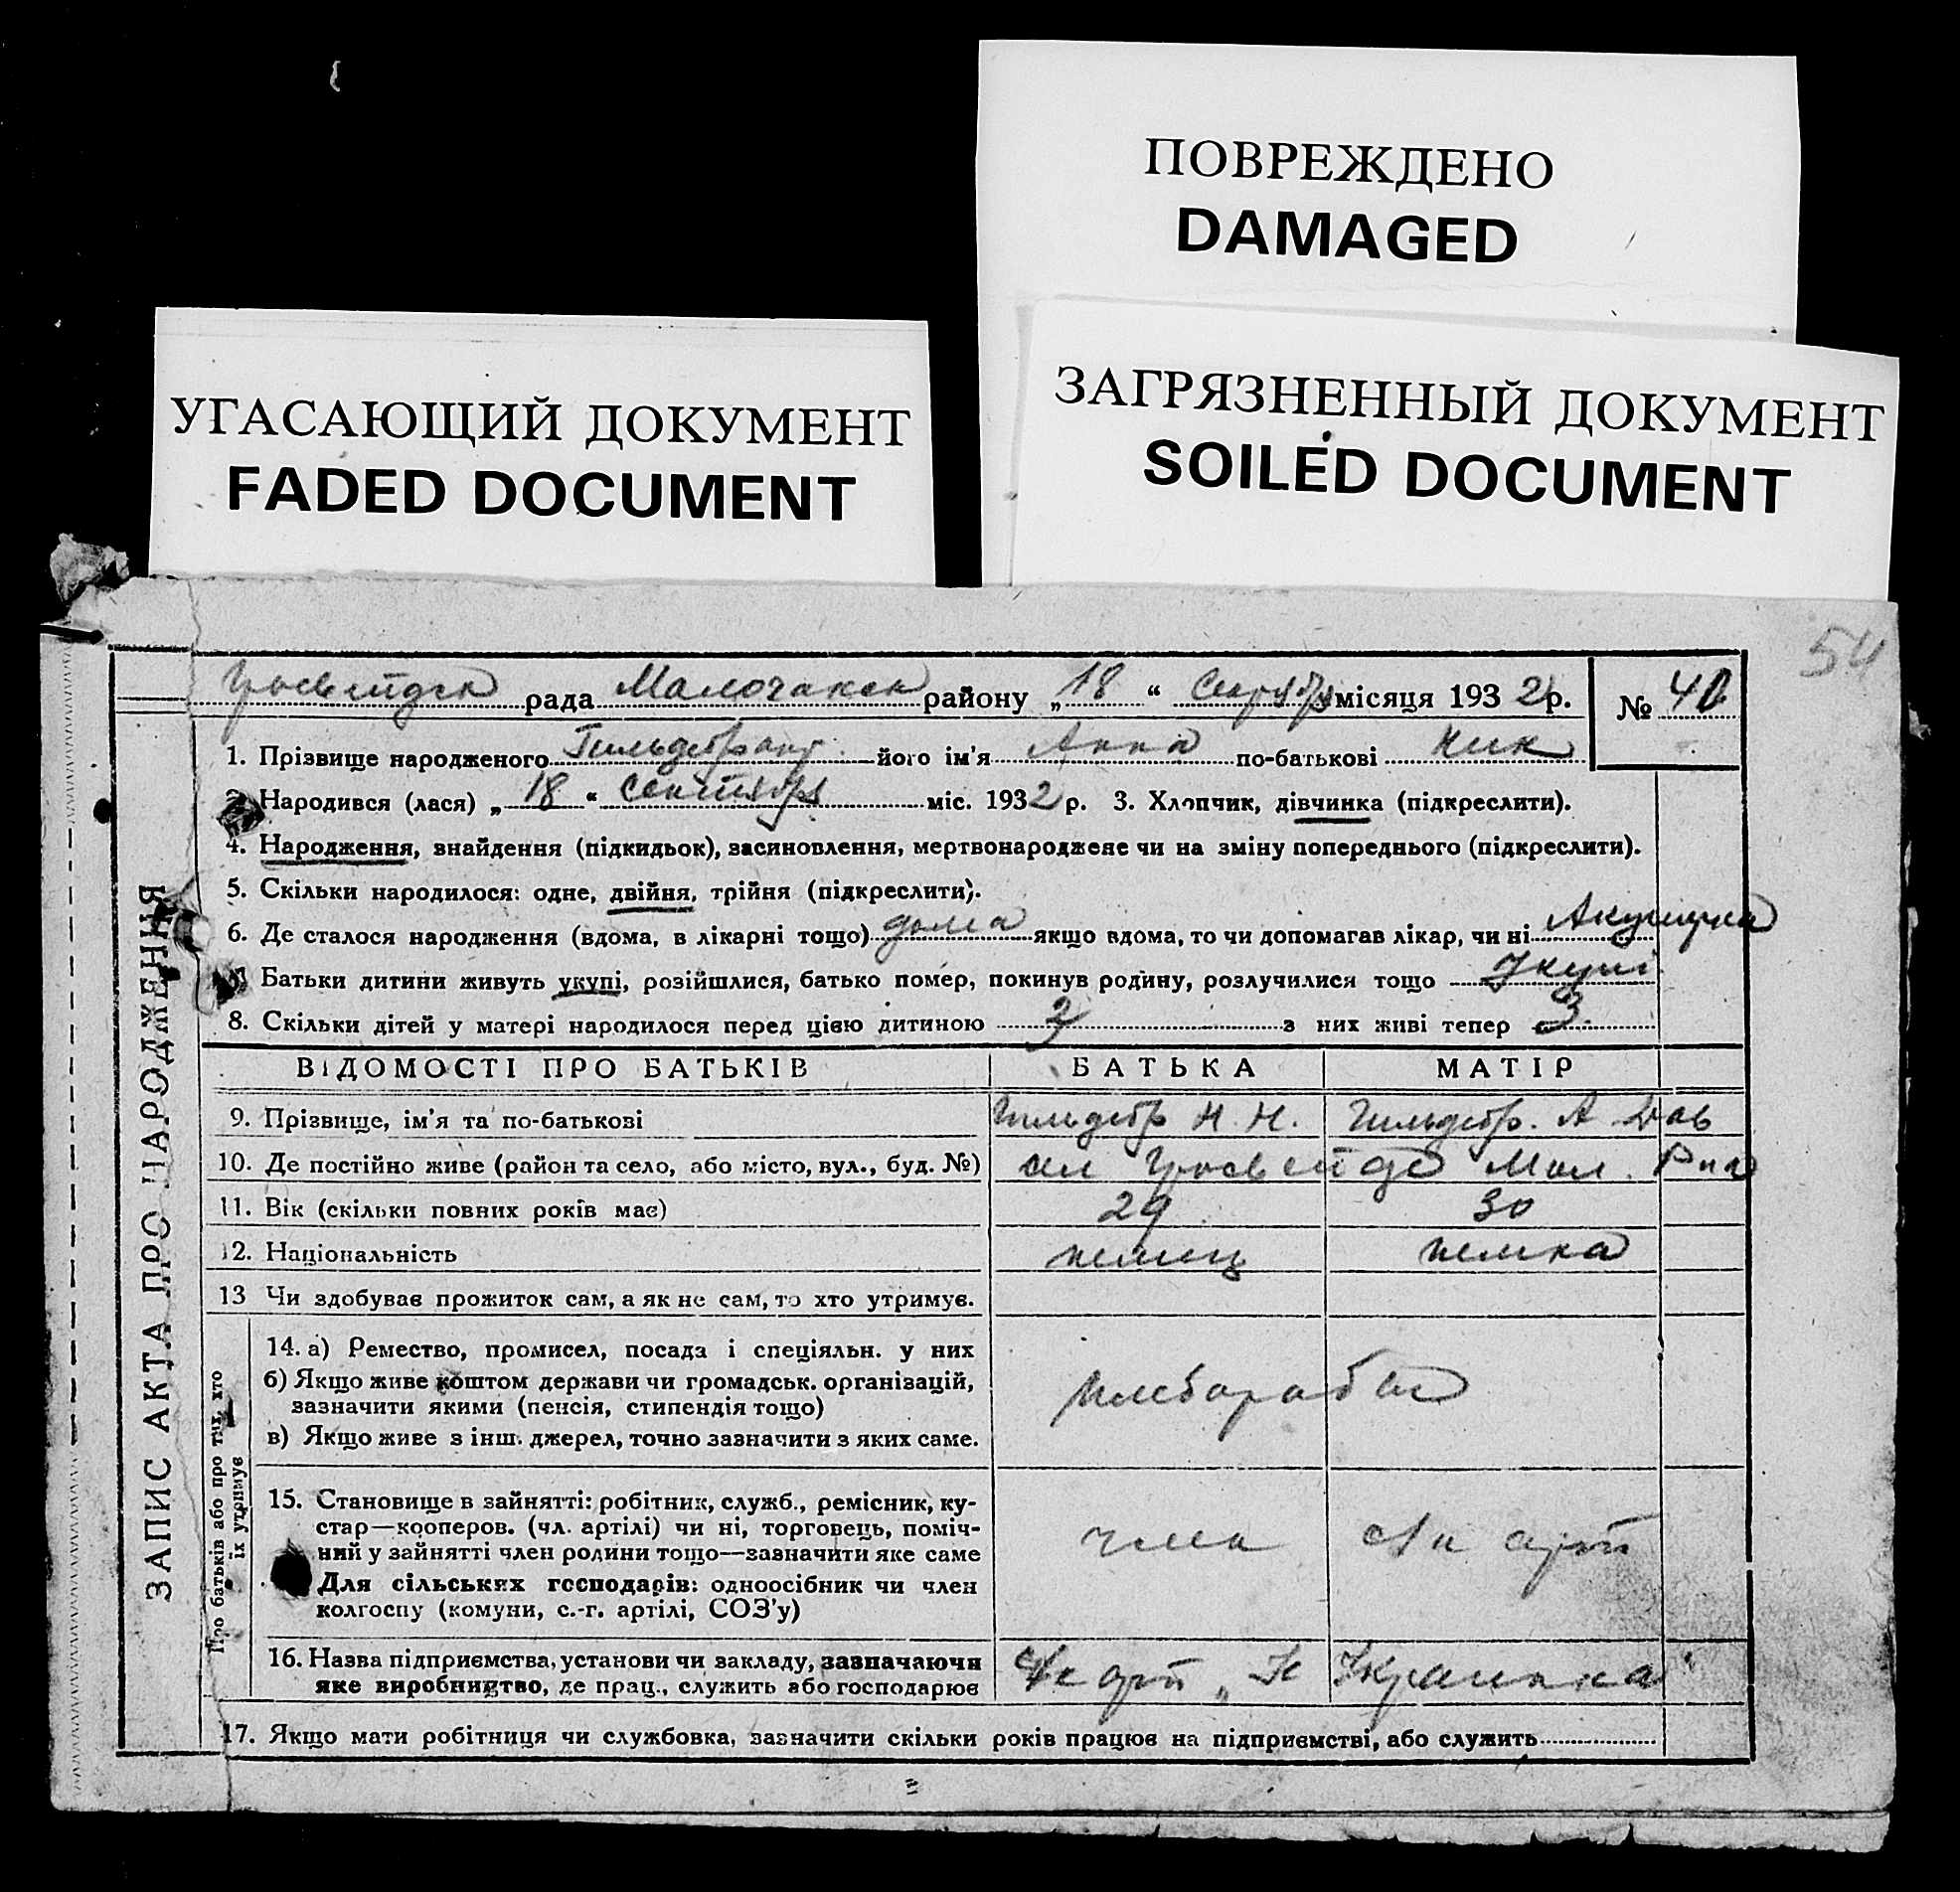 ПОВРЕЖДЕНО
DAMAGED
УГАСАЮЩИЙ ДОКУМЕНТ
FADED DOCUMENT
ЗАГРЯЗНЕННЫЙ ДОКУМЕНТ
SOILED DOCUMENT
54
рада Малочакск району „18“ місяця 1932 р. № 40
1. Прізвище народженого Гильдебранд його ім'я Анна по-батькові Ник
Народився (лася) „18“ Сентября міс. 1932 р. 3. Хлопчик, дівчинка (підкреслити).
4. Народження, внайдення (підкидьок), васиновлення, мертвонароджене чи на зміну попереднього (підкреслити).
5. Скільки народилося: одне, двійня, трійня (підкреслити).
6. Де сталося народження (вдома, в лікарні тощо) дома якщо вдома, то чи допомагав лікар, чи ні Акушерка
Батьки дитини живуть укупі, розійшлися, батько помер, покинув родину, розлучилися тощо Укупі
8. Скільки дітей у матері народилося перед цією дитиною 2 з них живі тепер 3
ВІДОМОСТІ ПРО БАТЬКІВ БАТЬКА МАТІР
9. Прізвище, ім'я та по-батькові Гильдебр Н. Н. Гильдебр. А Дав
10. Де постійно живе (район та село, або місто, вул., буд. №) Мол.
11. Вік (скільки повних років має) 29 30
12. Національність немец немка
13 Чи здобуває прожиток сам, а як не сам, то хто утримує.
14. а) Ремество, промисел, посада і спеціяльн. у них
б) Якщо живе коштом держави чи громадськ. організацій,
зазначити якими (пенсія, стипендія тощо)
в) Якщо живе з інш. джерел, точно зазначити з яких саме.
15. Становище в зайнятті: робітник, служб., ремісник, ку-
стар—кооперов. (чл. артілі) чи ні, торговець, поміч-
ний у зайнятті член родини тощо—зазначити яке саме
Для сільських господарів: одноосібник чи член
колгоспу (комуни, с.-г. артілі, СОЗ'у)
член
16. Назва підприємства, установи чи закладу, зазначаючи
яке виробництво, де прац., служить або господарює
17. Якщо мати робітниця чи службовка, зазначити скільки років працює на підприємстві, або служить
ЗАПИС АКТА ПРО НАРОДЖЕННЯ
Про батьків або про тих, хто
їх утримує